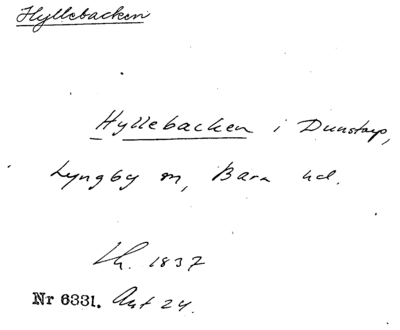 Hyllebacken
Hyllebacken i Dunstorp,
Lyngby sn, Bara hd.
Lh. 1837
Nr 6331. Akt 24.